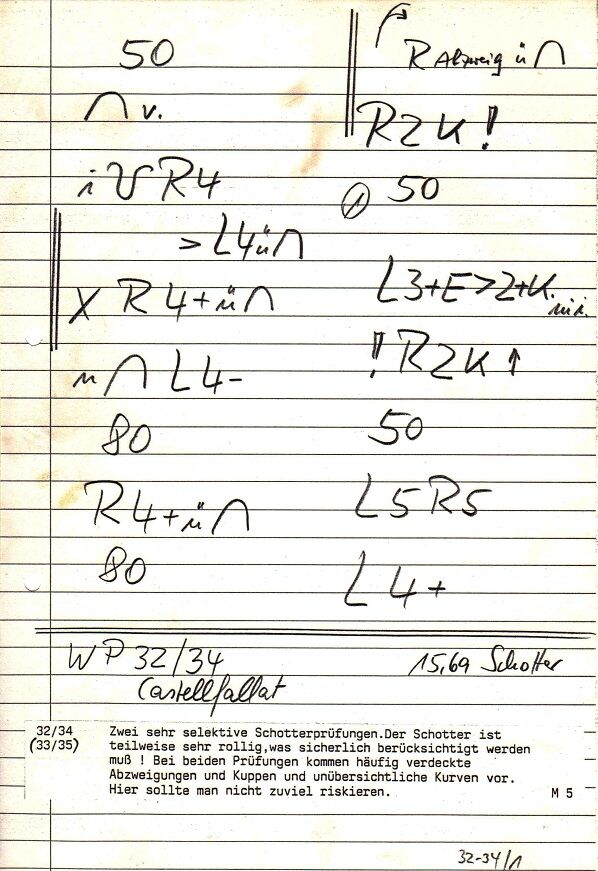 50
∩ v.
i V R4
> L4 ü ∩
X R4+ ü ∩
n ∩ L4-
80
R4+ ü ∩
80
R Abzweig ü ∩
R2K!
① 50
L3+E>2+K.
!R2K↑
50
L5R5
L4+
WP 32/34 15,69 Schotter
Castellfallat
32/34 Zwei sehr selektive Schotterprüfungen.Der Schotter ist
(33/35) teilweise sehr rollig,was sicherlich berücksichtigt werden
muß ! Bei beiden Prüfungen kommen häufig verdeckte
Abzweigungen und Kuppen und unübersichtliche Kurven vor.
Hier sollte man nicht zuviel riskieren. M 5
32-34/1